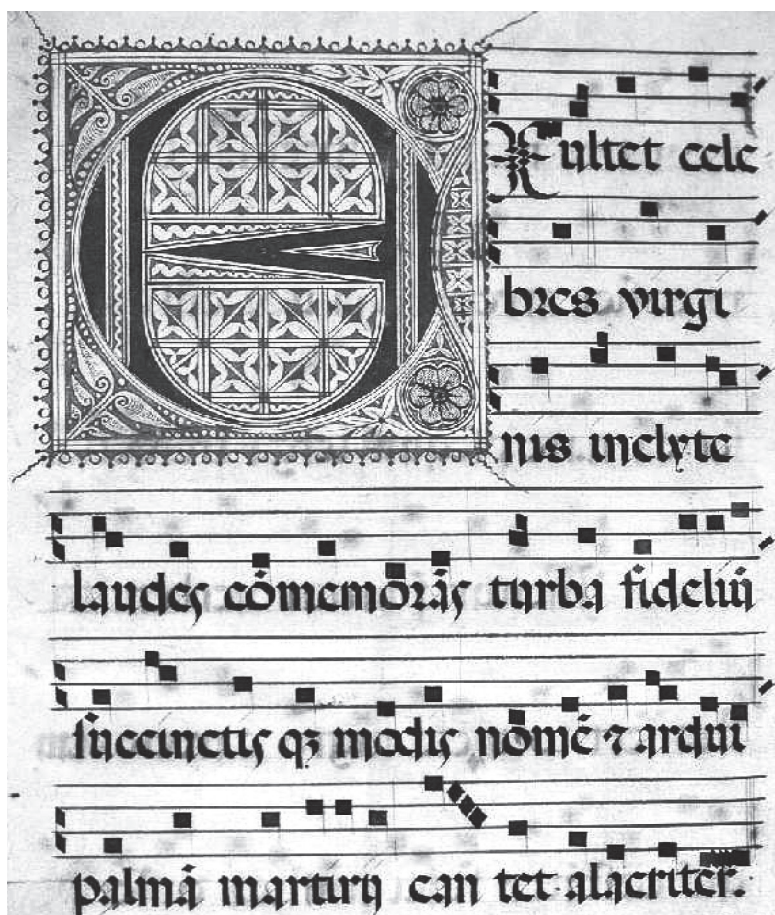 Exultet cele
bres virgi
nis inclyte
laudes cōmemorās turba fideliū
succinctis qꝫ modis nomē ⁊ ardui
palmā martirij can tet alacriter.